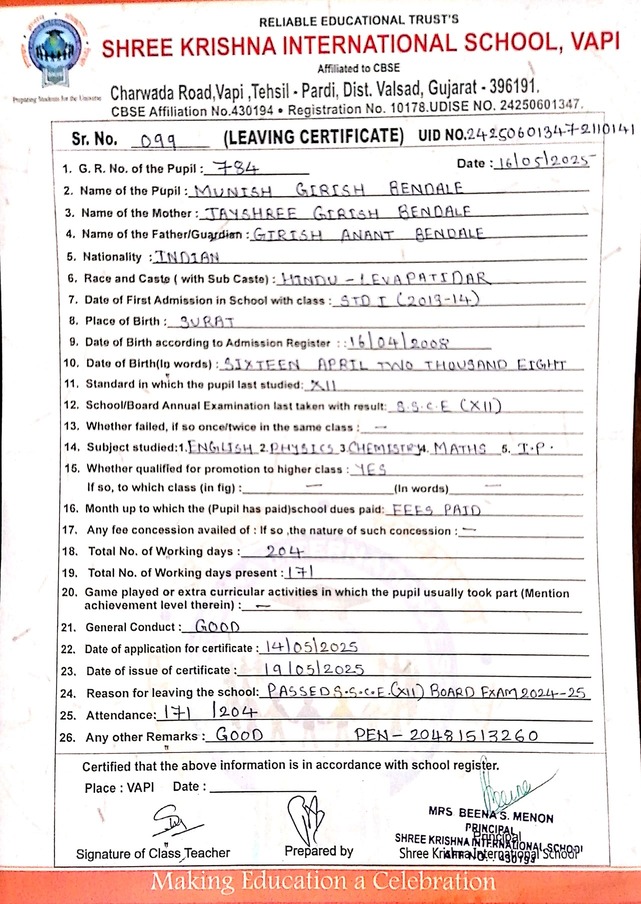 RELIABLE EDUCATIONAL TRUST'S
SHREE KRISHNA INTERNATIONAL SCHOOL, VAPI
Affiliated to CBSE
Preparing Students for the Universe
Charwada Road,Vapi ,Tehsil - Pardi, Dist. Valsad, Gujarat - 396191.
CBSE Affiliation No.430194 • Registration No. 10178.UDISE NO. 24250601347.
Sr. No. 099 (LEAVING CERTIFICATE) UID NO.24250601347-2110141
1. G. R. No. of the Pupil : 784 Date : 16/05/2025
2. Name of the Pupil : MUNISH GIRISH BENDALE
3. Name of the Mother : JAYSHREE GIRISH BENDALE
4. Name of the Father/Guardian : GIRISH ANANT BENDALE
5. Nationality : INDIAN
6. Race and Caste ( with Sub Caste) : HINDU - LEVAPATIDAR
7. Date of First Admission in School with class : STD I (2013-14)
8. Place of Birth : SURAT
9. Date of Birth according to Admission Register : : 16/04/2008
10. Date of Birth(In words) : SIXTEEN APRIL TWO THOUSAND EIGHT
11. Standard in which the pupil last studied: XII
12. School/Board Annual Examination last taken with result: S.S.C.E (XII)
13. Whether failed, if so once/twice in the same class : —
14. Subject studied:1. ENGLISH 2. PHYSICS 3. CHEMISTRY 4. MATHS 5. I.P.
15. Whether qualified for promotion to higher class : YES
If so, to which class (in fig) : — (In words) —
16. Month up to which the (Pupil has paid)school dues paid: FEES PAID
17. Any fee concession availed of : If so ,the nature of such concession : —
18. Total No. of Working days : 204
19. Total No. of Working days present : 171
20. Game played or extra curricular activities in which the pupil usually took part (Mention
achievement level therein) : —
21. General Conduct : GOOD
22. Date of application for certificate : 14/05/2025
23. Date of issue of certificate : 19/05/2025
24. Reason for leaving the school: PASSED S.S.C.E.(XII) BOARD EXAM 2024-25
25. Attendance: 171 /204
26. Any other Remarks : GOOD PEN- 20481513260
Certified that the above information is in accordance with school register.
Place : VAPI Date :
MRS BEENA S. MENON
PRINCIPAL
SHREE KRISHNA INTERNATIONAL SCHOOL
Principal
Signature of Class Teacher Prepared by Shree Krishna International School
Making Education a Celebration